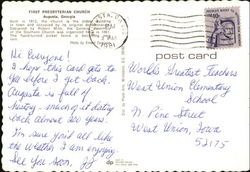 FIRST PRESBYTERIAN CHURCH
Augusta, Georgia
Built in 1812, the church is the oldest building
in town and
designed by Robert Mills. The
of the Southern Church was organized here in 1861.
The
post card
Hi Everyone!
I hope this card gets to
you before I get back.
Augusta is full of
history - much of it dating
back almost 200 years.
I'm sure you'd all like
the weather I am enjoying.
See you soon,
World's Greatest Teachers
West Union Elementary
School
N Pine Street
West Union, Iowa
52175